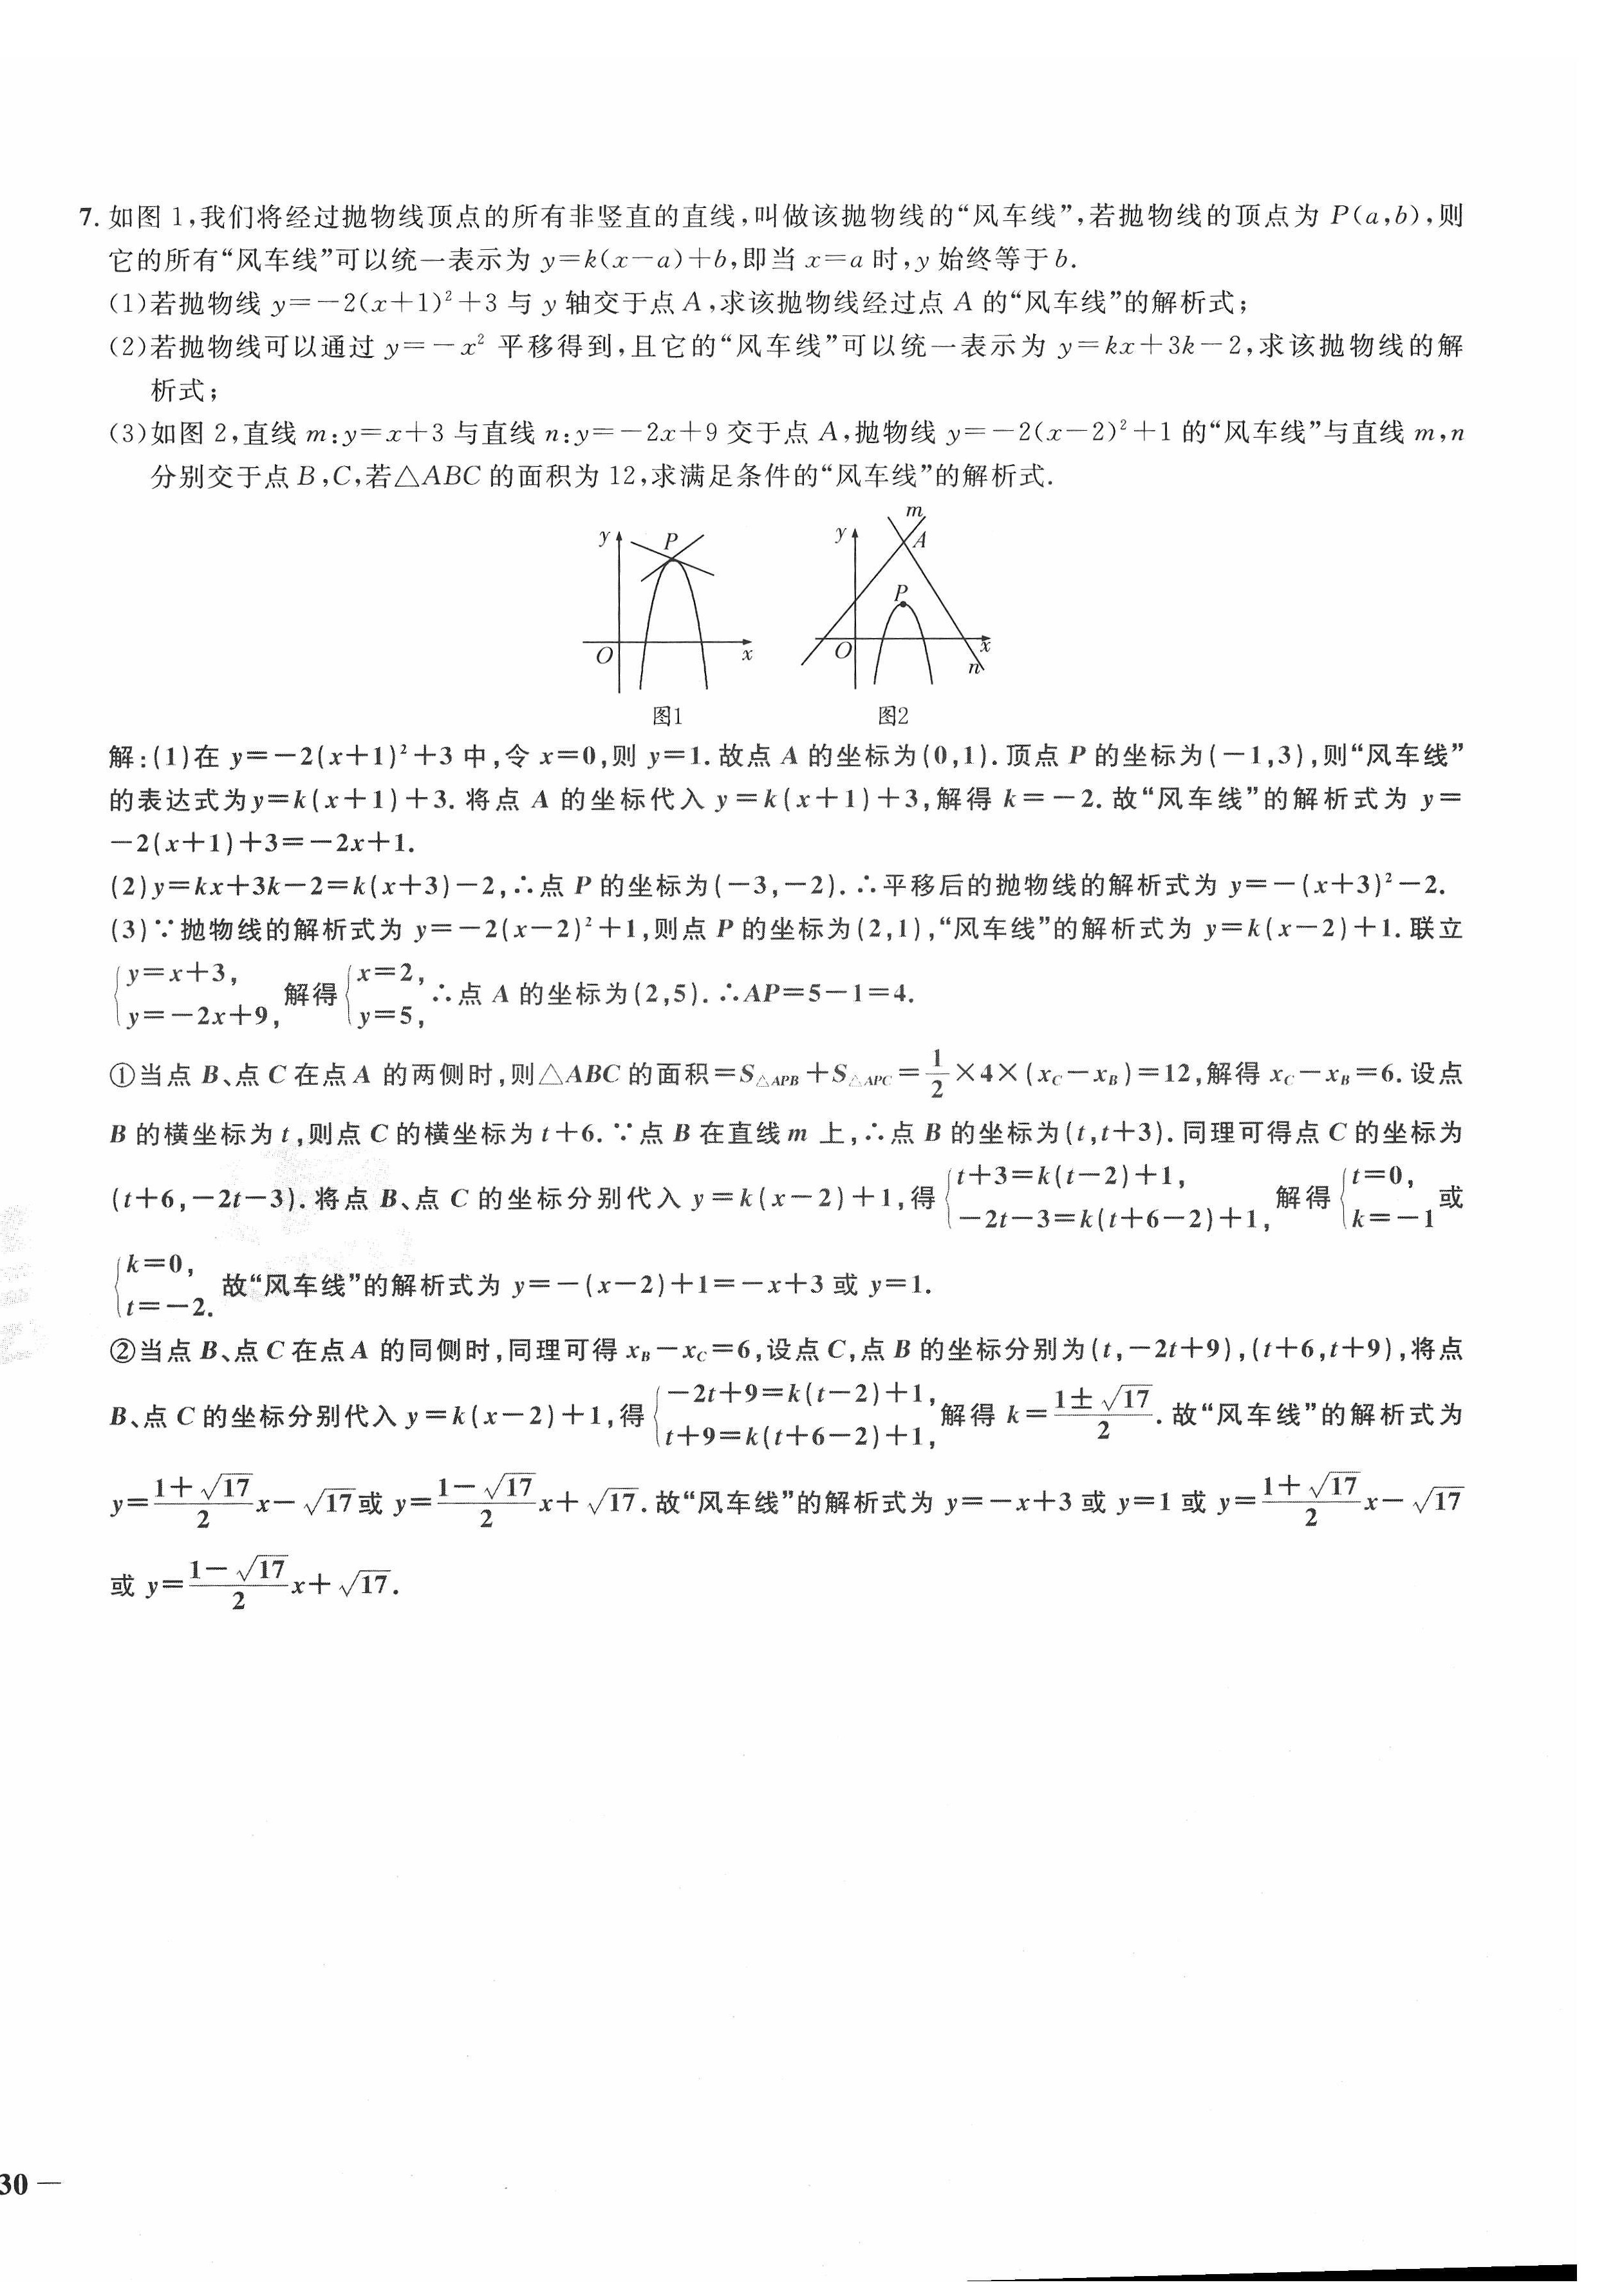 7. 如图 1,我们将经过抛物线顶点的所有非竖直的直线,叫做该抛物线的“风车线”,若抛物线的顶点为 P(a,b),则
它的所有“风车线”可以统一表示为 y=k(x-a)+b,即当 x=a 时,y 始终等于 b.
(1)若抛物线 y=-2(x+1)²+3 与 y 轴交于点 A,求该抛物线经过点 A 的“风车线”的解析式;
(2)若抛物线可以通过 y=-x² 平移得到,且它的“风车线”可以统一表示为 y=kx+3k-2,求该抛物线的解
析式;
(3)如图 2,直线 m:y=x+3 与直线 n:y=-2x+9 交于点 A,抛物线 y=-2(x-2)²+1 的“风车线”与直线 m,n
分别交于点 B,C,若△ABC 的面积为 12,求满足条件的“风车线”的解析式.
y P O x
图1
y m A P O x n
图2
解:(1)在 y=-2(x+1)²+3 中,令 x=0,则 y=1.故点 A 的坐标为(0,1).顶点 P 的坐标为(-1,3),则“风车线”
的表达式为y=k(x+1)+3.将点 A 的坐标代入 y=k(x+1)+3,解得 k=-2.故“风车线”的解析式为 y=
-2(x+1)+3=-2x+1.
(2)y=kx+3k-2=k(x+3)-2,∴点 P 的坐标为(-3,-2).∴平移后的抛物线的解析式为 y=-(x+3)²-2.
(3)∵抛物线的解析式为 y=-2(x-2)²+1,则点 P 的坐标为(2,1),“风车线”的解析式为 y=k(x-2)+1.联立
{y=x+3, y=-2x+9, 解得{x=2, y=5, ∴点 A 的坐标为(2,5).∴AP=5-1=4.
①当点 B、点 C 在点 A 的两侧时,则△ABC 的面积=S△APB+S△APC=1/2×4×(xC-xB)=12,解得 xC-xB=6.设点
B 的横坐标为 t,则点 C 的横坐标为 t+6.∵点 B 在直线 m 上,∴点 B 的坐标为(t,t+3).同理可得点 C 的坐标为
(t+6,-2t-3).将点 B、点 C 的坐标分别代入 y=k(x-2)+1,得{t+3=k(t-2)+1, -2t-3=k(t+6-2)+1, 解得{t=0, k=-1 或
{k=0, t=-2. 故“风车线”的解析式为 y=-(x-2)+1=-x+3 或 y=1.
②当点 B、点 C 在点 A 的同侧时,同理可得 xB-xC=6,设点 C,点 B 的坐标分别为(t,-2t+9),(t+6,t+9),将点
B、点 C 的坐标分别代入 y=k(x-2)+1,得{-2t+9=k(t-2)+1, t+9=k(t+6-2)+1, 解得 k=(1±√17)/2.故“风车线”的解析式为
y=(1+√17)/2 x-√17或 y=(1-√17)/2 x+√17.故“风车线”的解析式为 y=-x+3 或 y=1 或 y=(1+√17)/2 x-√17
或 y=(1-√17)/2 x+√17.
30 —